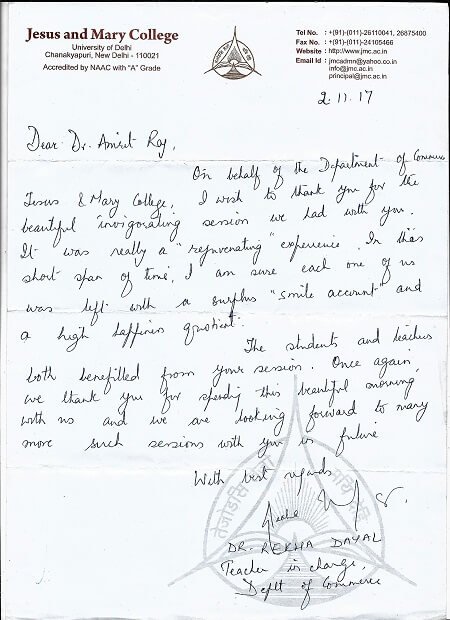 Jesus and Mary College
University of Delhi
Chanakyapuri, New Delhi - 110021
Accredited by NAAC with "A" Grade
Tel No. : +(91)-(011)-26110041, 26875400
Fax No. : +(91)-(011)-24105466
Website : http://www.jmc.ac.in
Email Id : jmcadmn@yahoo.co.in
info@jmc.ac.in
principal@jmc.ac.in
2.11.17
Dear Dr. Amrit Raj,
On behalf of the Department of Commerce
Jesus & Mary College, I wish to thank you for the
beautiful invigorating session we had with you.
It was really a "rejnvenating" experience. In this
short span of time, I am sure each one of us
was left with a surplus "smile account" and
a high happiness quotient.
The students and teachers
both benefitted from your session. Once again,
we thank you for spending this beautiful morning
with us and we are looking forward to many
more such sessions with you in future
With best regards
DR. REKHA DAYAL
Teacher in charge,
Deptt of Commerce